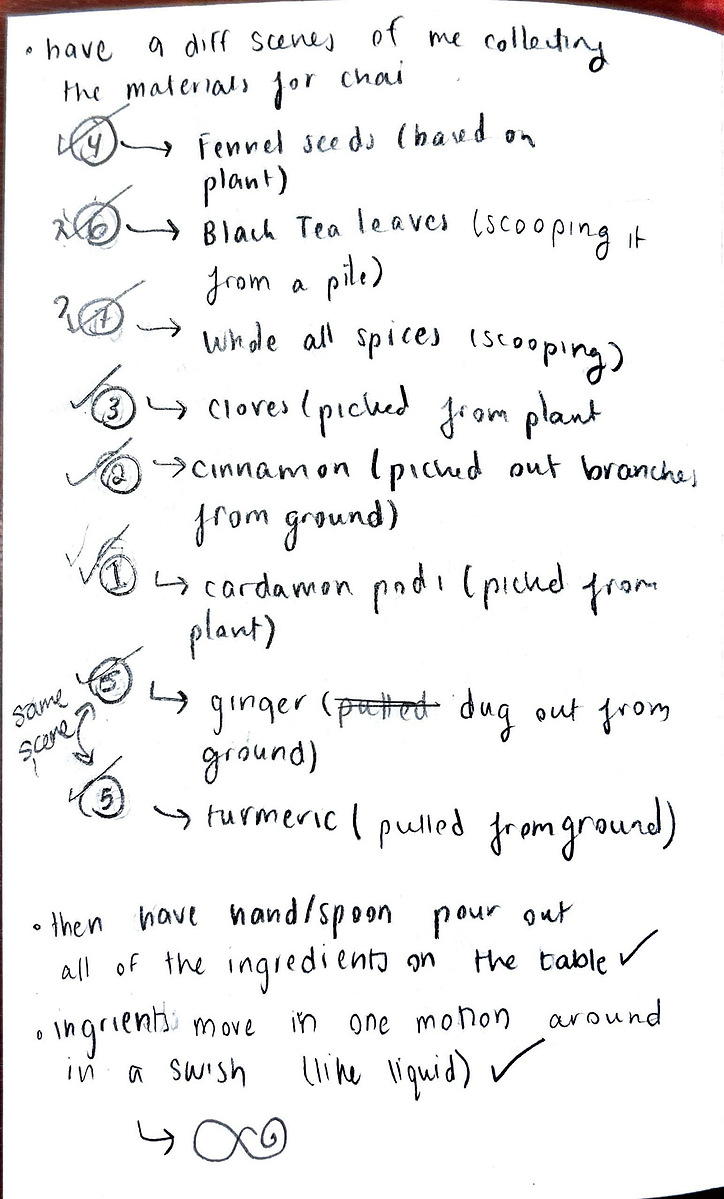 • have a diff scenes of me collecting
the materials for chai
4 → Fennel seeds (based on
plant)
6 → Black Tea leaves (scooping it
from a pile)
7 → Whole all spices (scooping)
3 ↳ cloves (picked from plant
2 → cinnamon (picked out branches
from ground)
1 ↳ cardamon pods (picked from
plant)
same
scene
5 ↳ ginger (pulled dug out from
ground)
5 ↳ turmeric (pulled from ground)
• then have hand/spoon pour out
all of the ingredients on the table ✓
• ingrients move in one motion around
in a swish (like liquid) ✓
↳